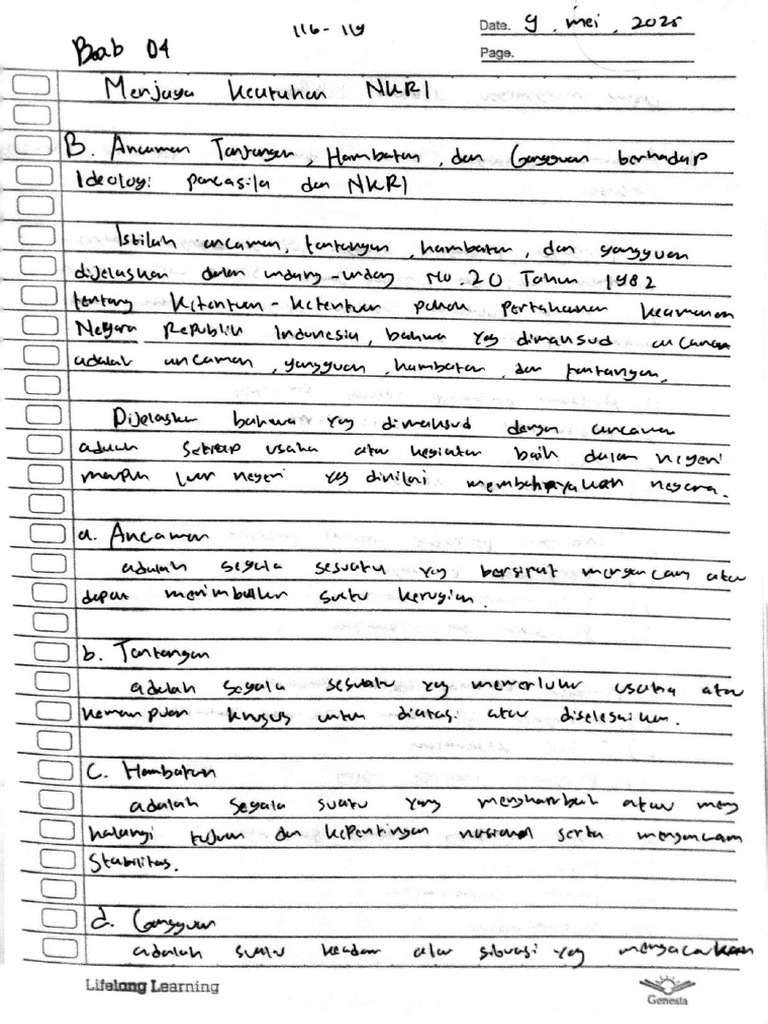 116-119
Date. 9, mei, 2025
Bab 04
Page.
Menjaga Keutuhan NKRI
B. Ancaman Tantangan, Hambatan, dan Gangguan berhadap
Ideologi pancasila dan NKRI
Istilah ancaman, tantangan, hambatan, dan gangguan
dijelaskan dalam undang-undang No.20 Tahun 1982
tentang Ketentuan-ketentuan pokok pertahanan keamanan
Negara Republik Indonesia, bahwa yag dimaksud ancaman
adalah ancaman, gangguan, hambatan, dan tantangan.
Dijelaskan bahwa yag dimaksud dengan ancaman
adalah setiap usaha atau kegiatan baik dalam negeri
maupun luar negeri yag dinilai membahayakan negara.
a. Ancaman
adalah segala sesuatu yag bersifat mengancam atau
dapat menimbulkan suatu kerugian.
b. Tantangan
adalah segala sesuatu yag memerlukan usaha atau
kemampuan khusus untuk diatasi atau diselesaikan.
C. Hambatan
adalah segala suatu yang menghambat atau meng
halangi tujuan dan kepentingan nasional serta mengancam
Stabilitas.
d. Gangguan
adalah suatu keadaan atau situasi yag mengacaukan
Lifelong Learning
Genesta